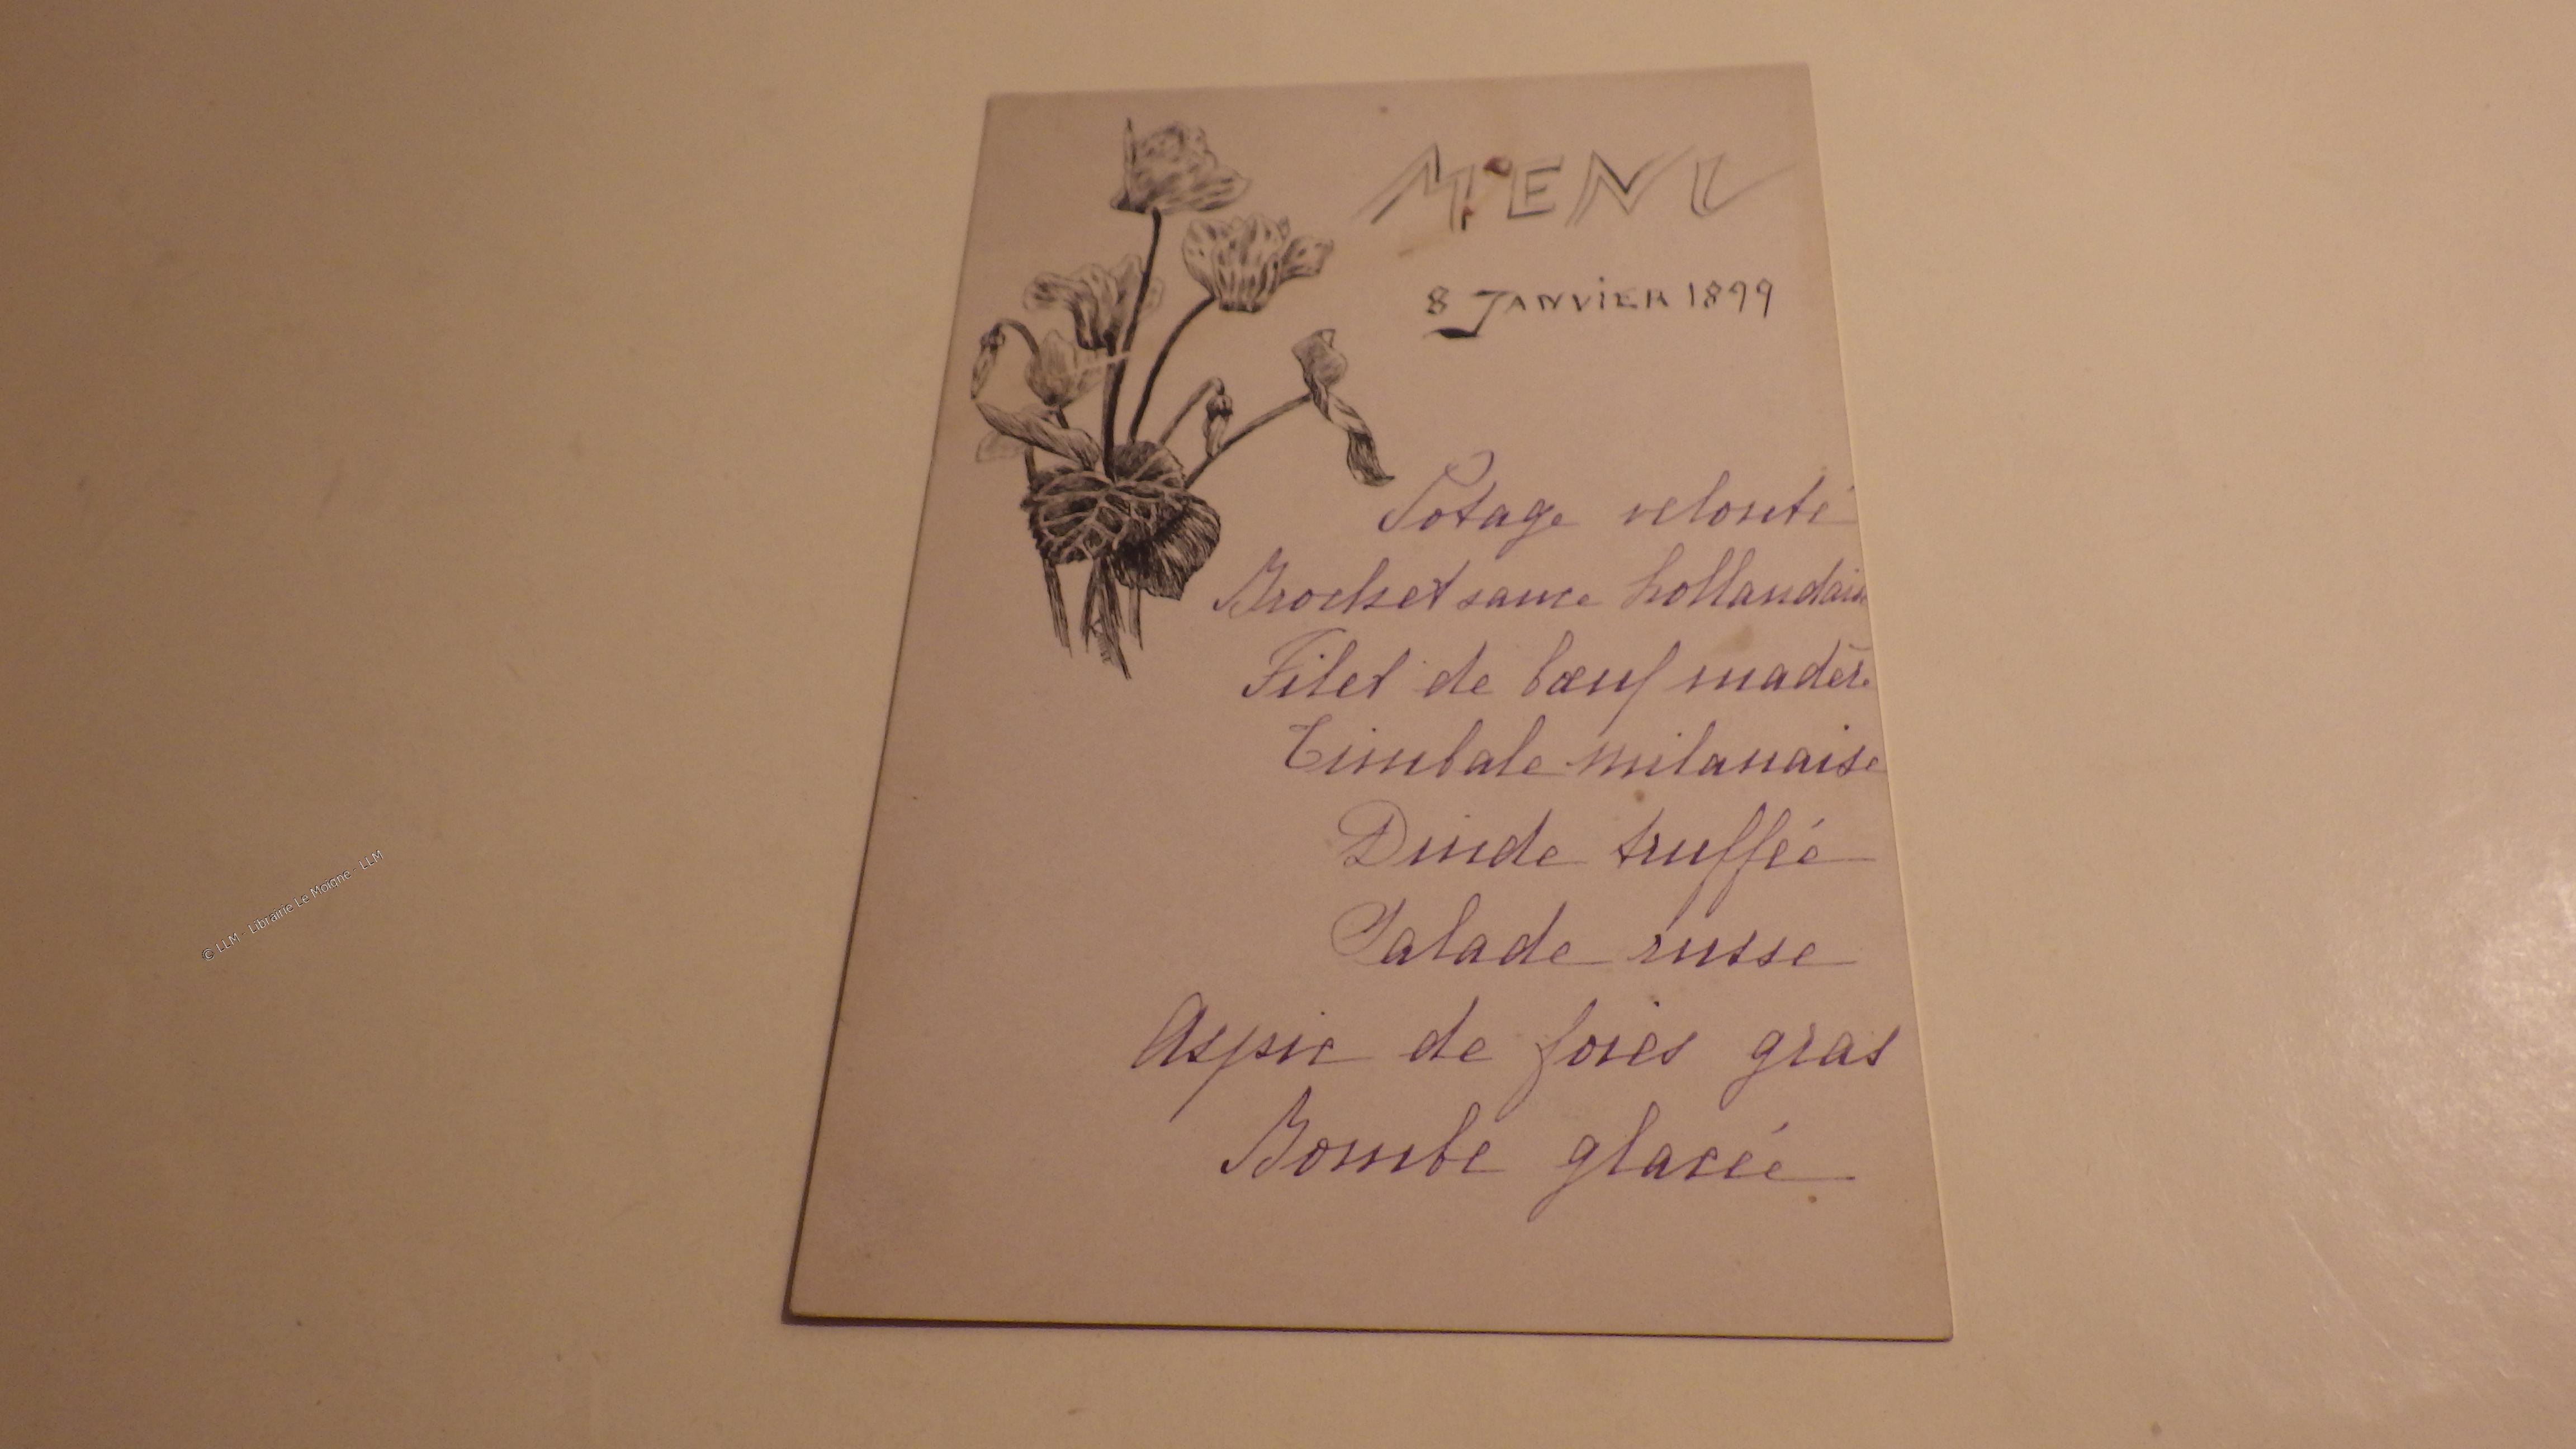 MENU
8 JANVIER 1899
Potage velouté
Brochet sauce hollandaise
Filet de bœuf madère
Timbale milanaise
Dinde truffée
Salade russe
Aspic de foies gras
Bombe glacée
© LLM - Librairie Le Moigne - LLM